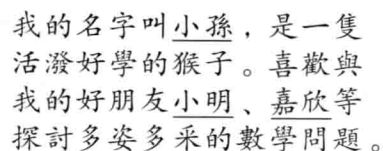 我的名字叫小孫，是一隻
活潑好學的猴子。喜歡與
我的好朋友小明、嘉欣等
探討多姿多采的數學問題。